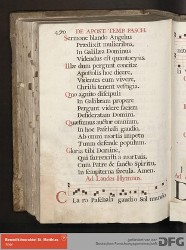 DE APOST. TEMP. PASCH.
Sermone blando Angelus
Prædixit mulieribus,
In Galilæa Dominus
Videndus est quantocyus.
Illæ dum pergunt concitæ
Apostolis hoc dicere,
Videntes eum vivere,
Christi tenent vestigia.
Quo agnito discipuli
In Galilæam propere
Pergunt videre faciem
Desideratam Domini.
Quæsumus auctor omnium,
In hoc Paschali gaudio,
Ab omni mortis impetu
Tuum defende populum.
Gloria tibi Domine,
Qui surrexisti a mortuis,
Cum Patre & sancto Spiritu,
In sempiterna sæcula. Amen.
Ad Laudes Hymnus.
Cla ro Paschali gaudio Sol mundo
DFG